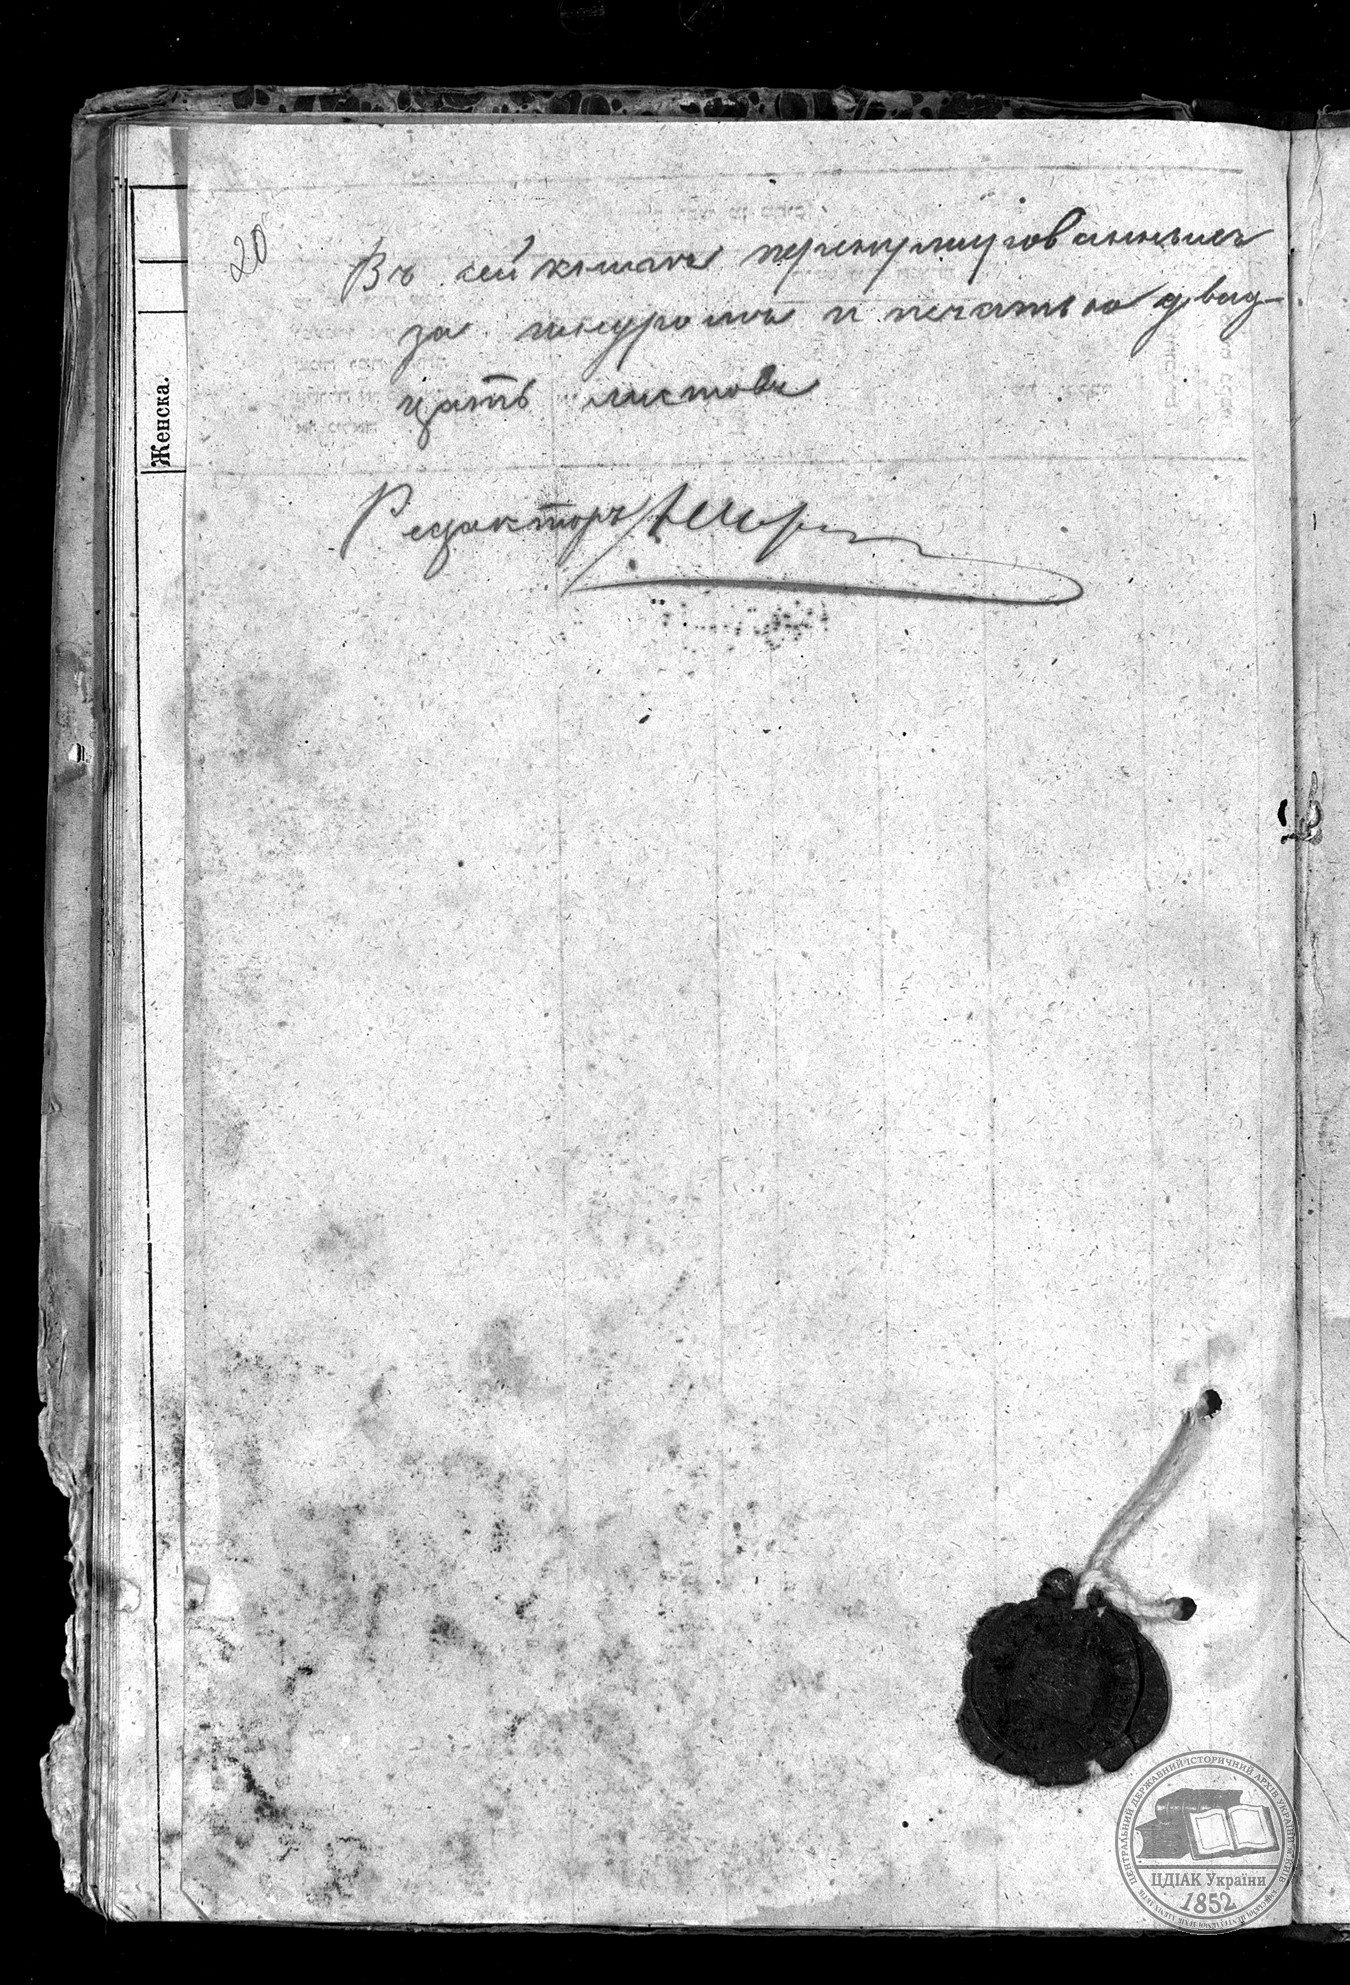 20
Въ сей книгѣ перенумерованныхъ
за шнуромъ и печатью двад-
цать листовъ
Редакторъ
Женска.
ЦЕНТРАЛЬНИЙ ДЕРЖАВНИЙ ІСТОРИЧНИЙ АРХІВ УКРАЇНИ
ЦДІАК України
1852